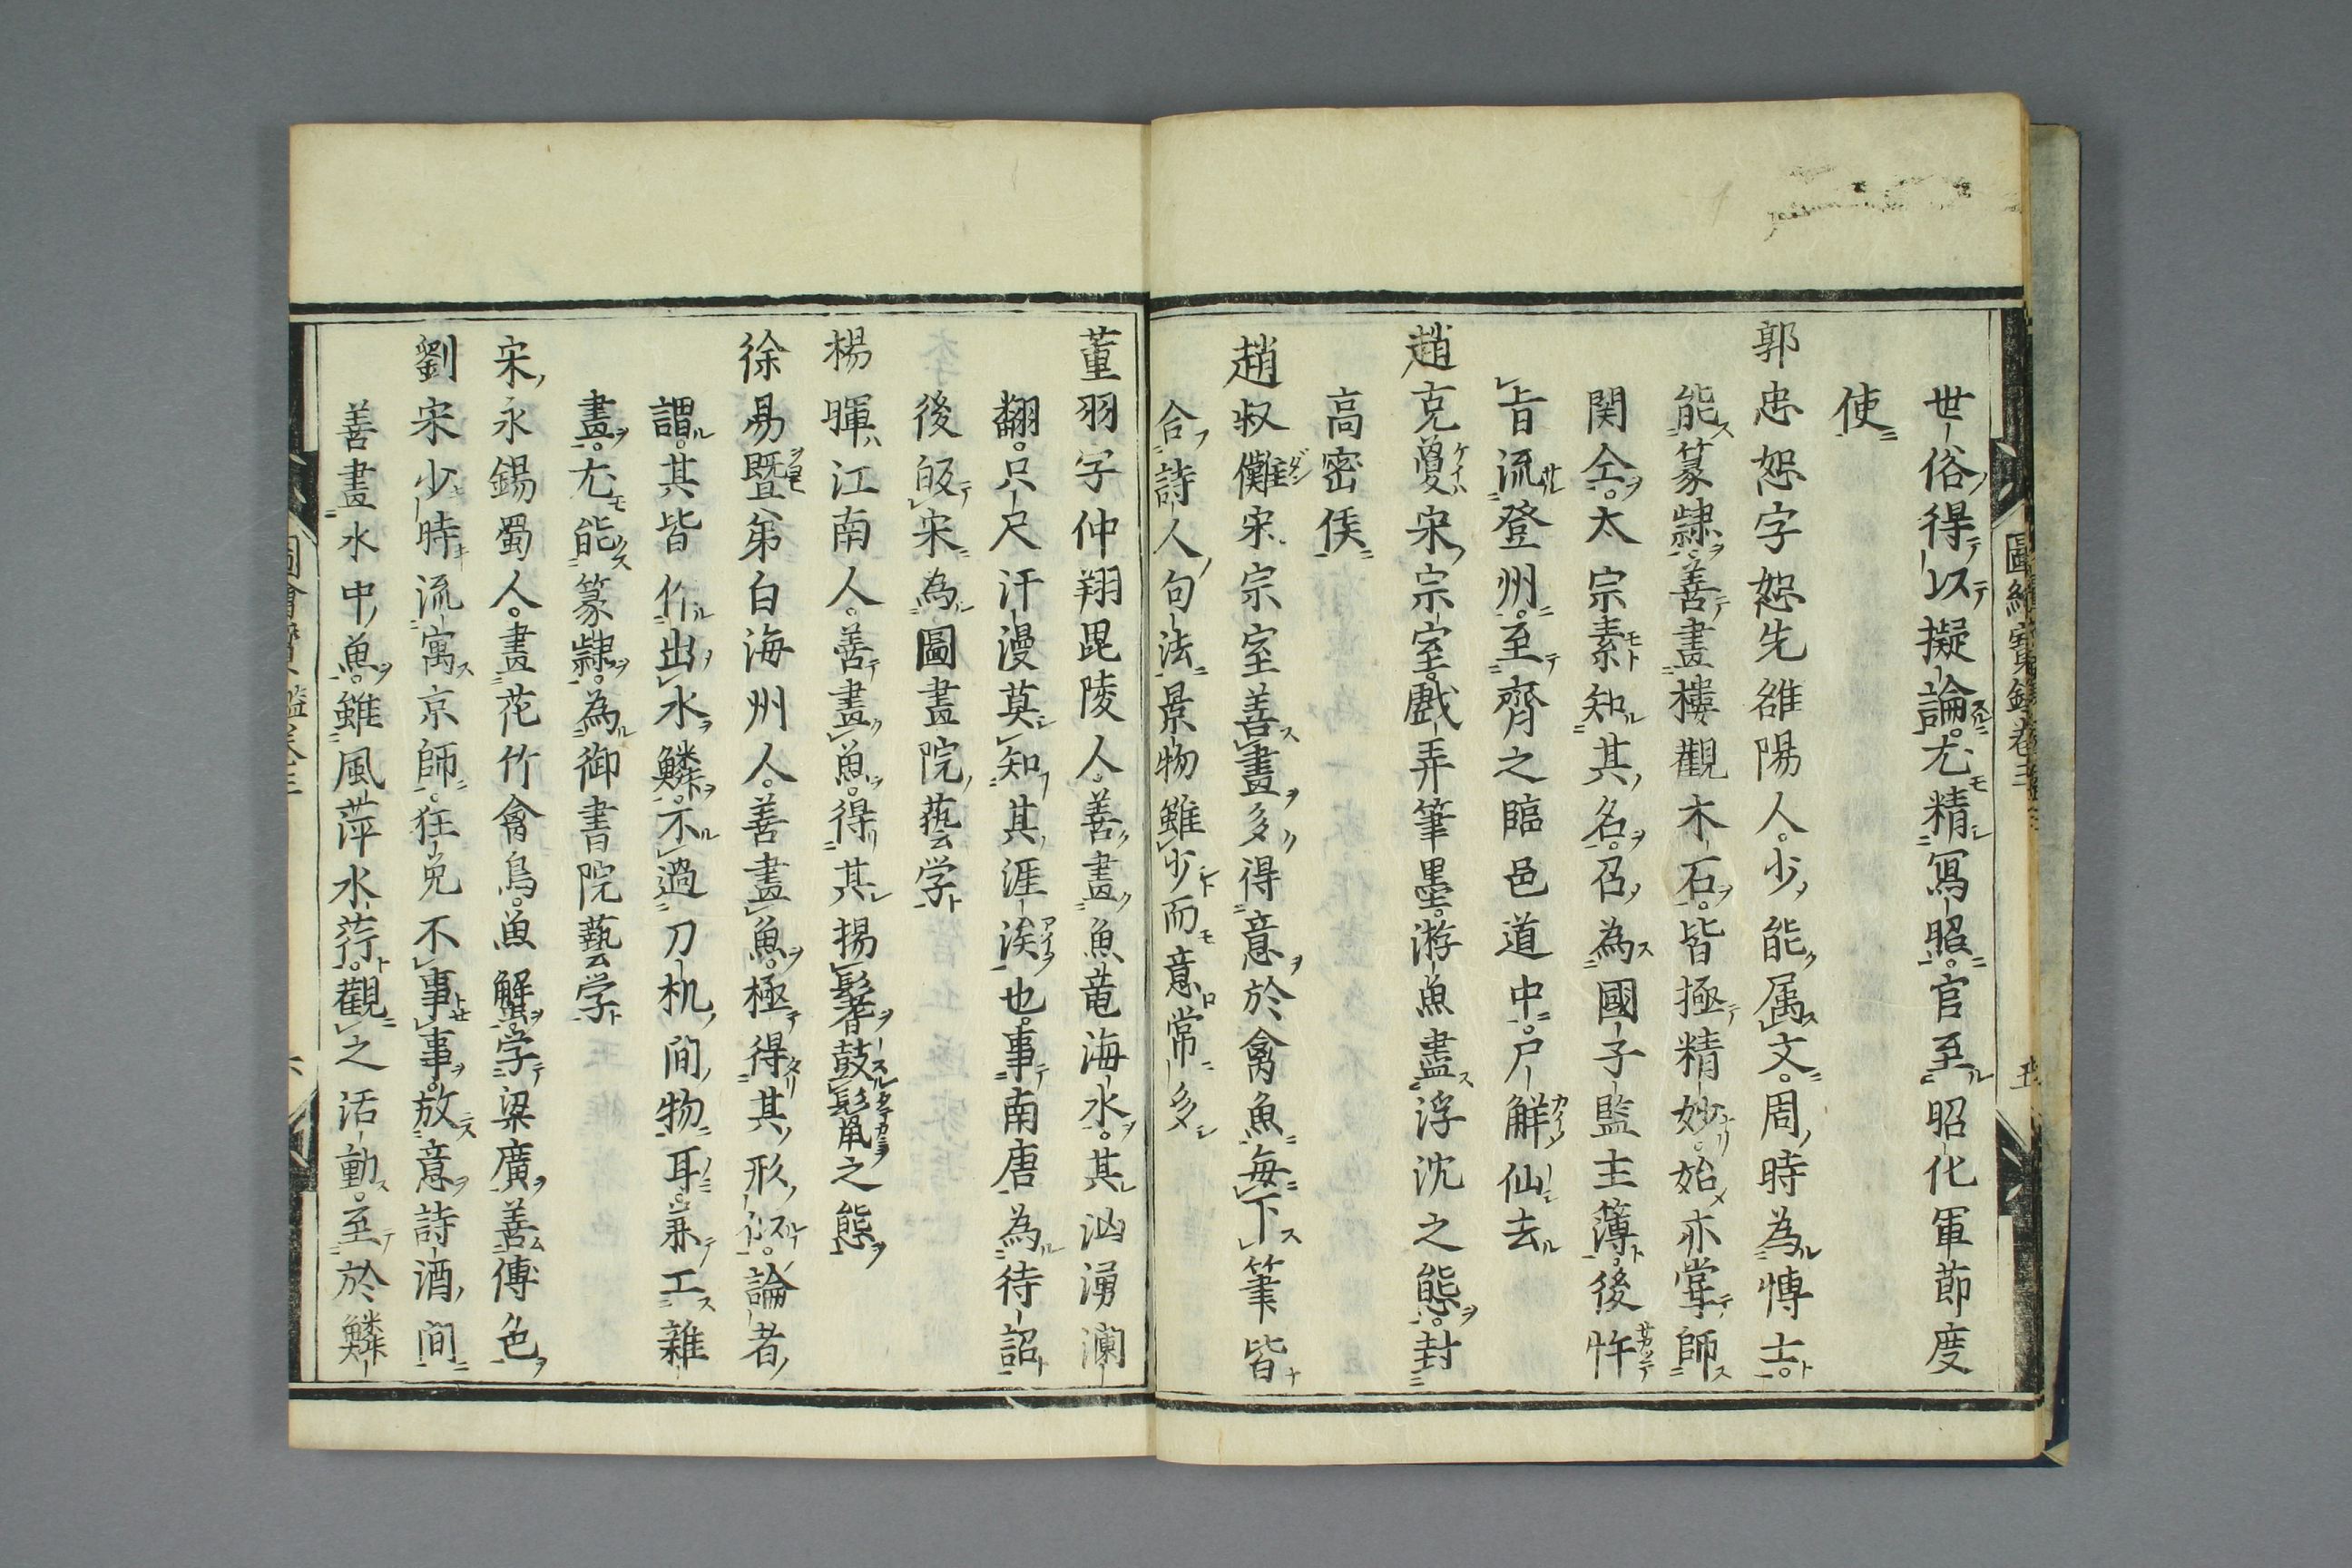 世俗得以擬論尤精寫照官至昭化軍節度
使
郭忠恕字恕先雒陽人少能属文周時為愽士
能篆隷善畫樓觀木石皆極精妙始亦甞師
関仝太宗素知其名召為國子監主薄後忤
旨流登州至齊之臨邑道中尸解仙去
趙克敻宋宗室戯弄筆墨游魚盡浮沈之態封
高密侯
趙叔儺宋宗室善畫多得意於禽魚毎下筆皆
合詩人句法景物雖少而意常多
董羽字仲翔毘陵人善畫魚竜海水其汹湧瀾
翻只尺汗漫莫知其涯涘也事南唐為待詔
後皈宋為圖畫院藝学
楊暉江南人善畫魚得其揚鬐鼓鬣之態
徐易暨弟白海州人善畫魚極得其形似論者
謂其皆作出水鱗不過刀机間物耳兼工雜
畫尤能篆隷為御書院藝学
宋永錫蜀人畫花竹禽鳥魚蟹学梁廣善傅色
劉宋少時流寓京師狂逸不事事放意詩酒間
善畫水中魚雖風萍水荇觀之活動至於鱗